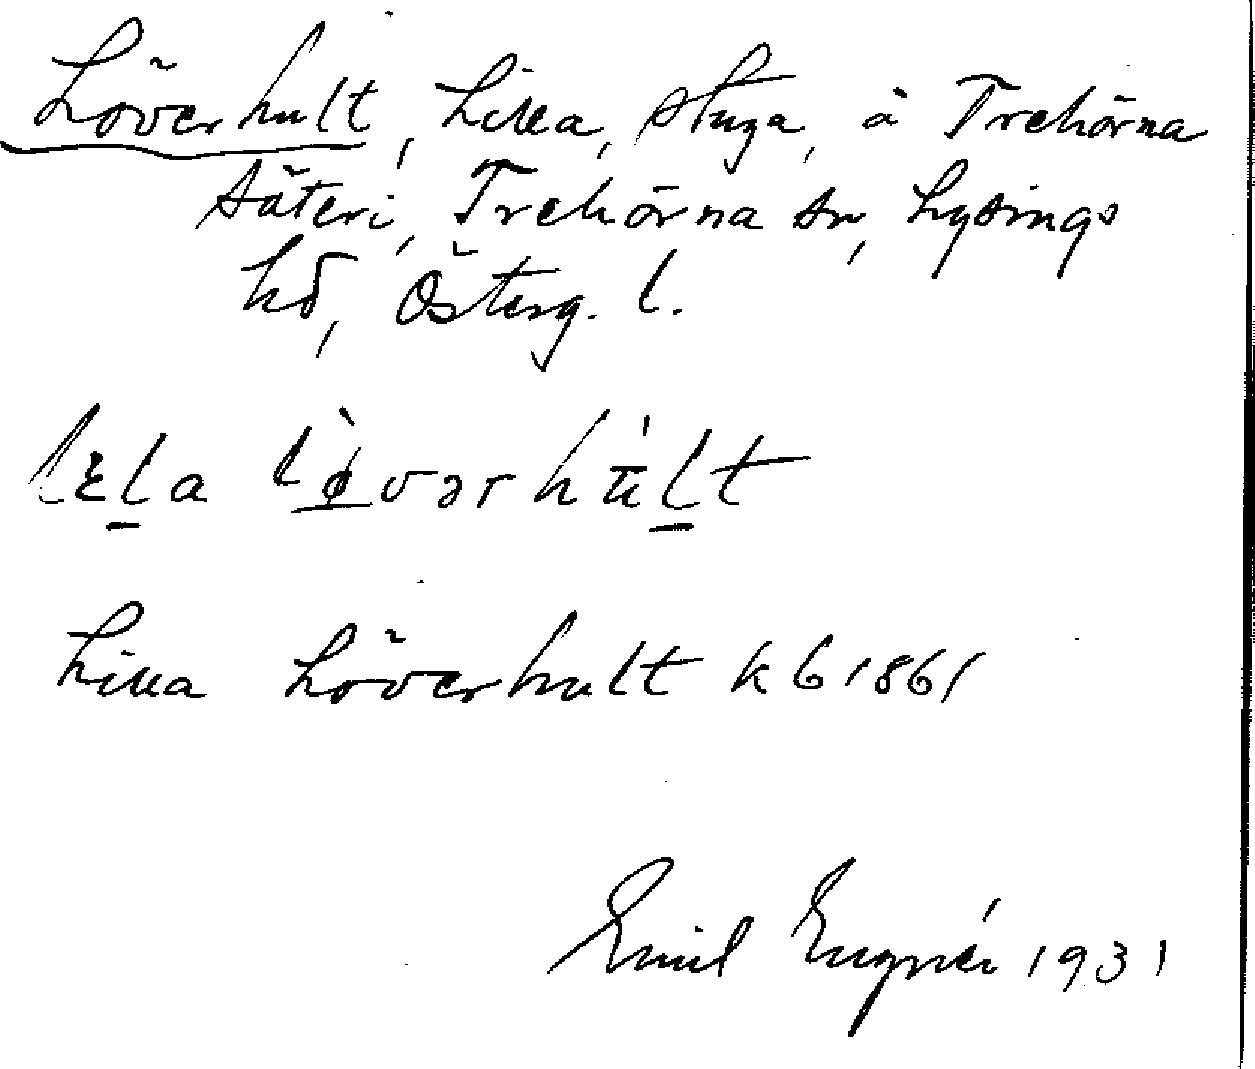 Löverhult, Lilla, stuga, å Trehörna
säteri, Trehörna sn, Lysings
hd, Österg. l.
lɛla lø̀vərhúlt
Lilla Löverhult kb 1861
Emil Engnér 1931